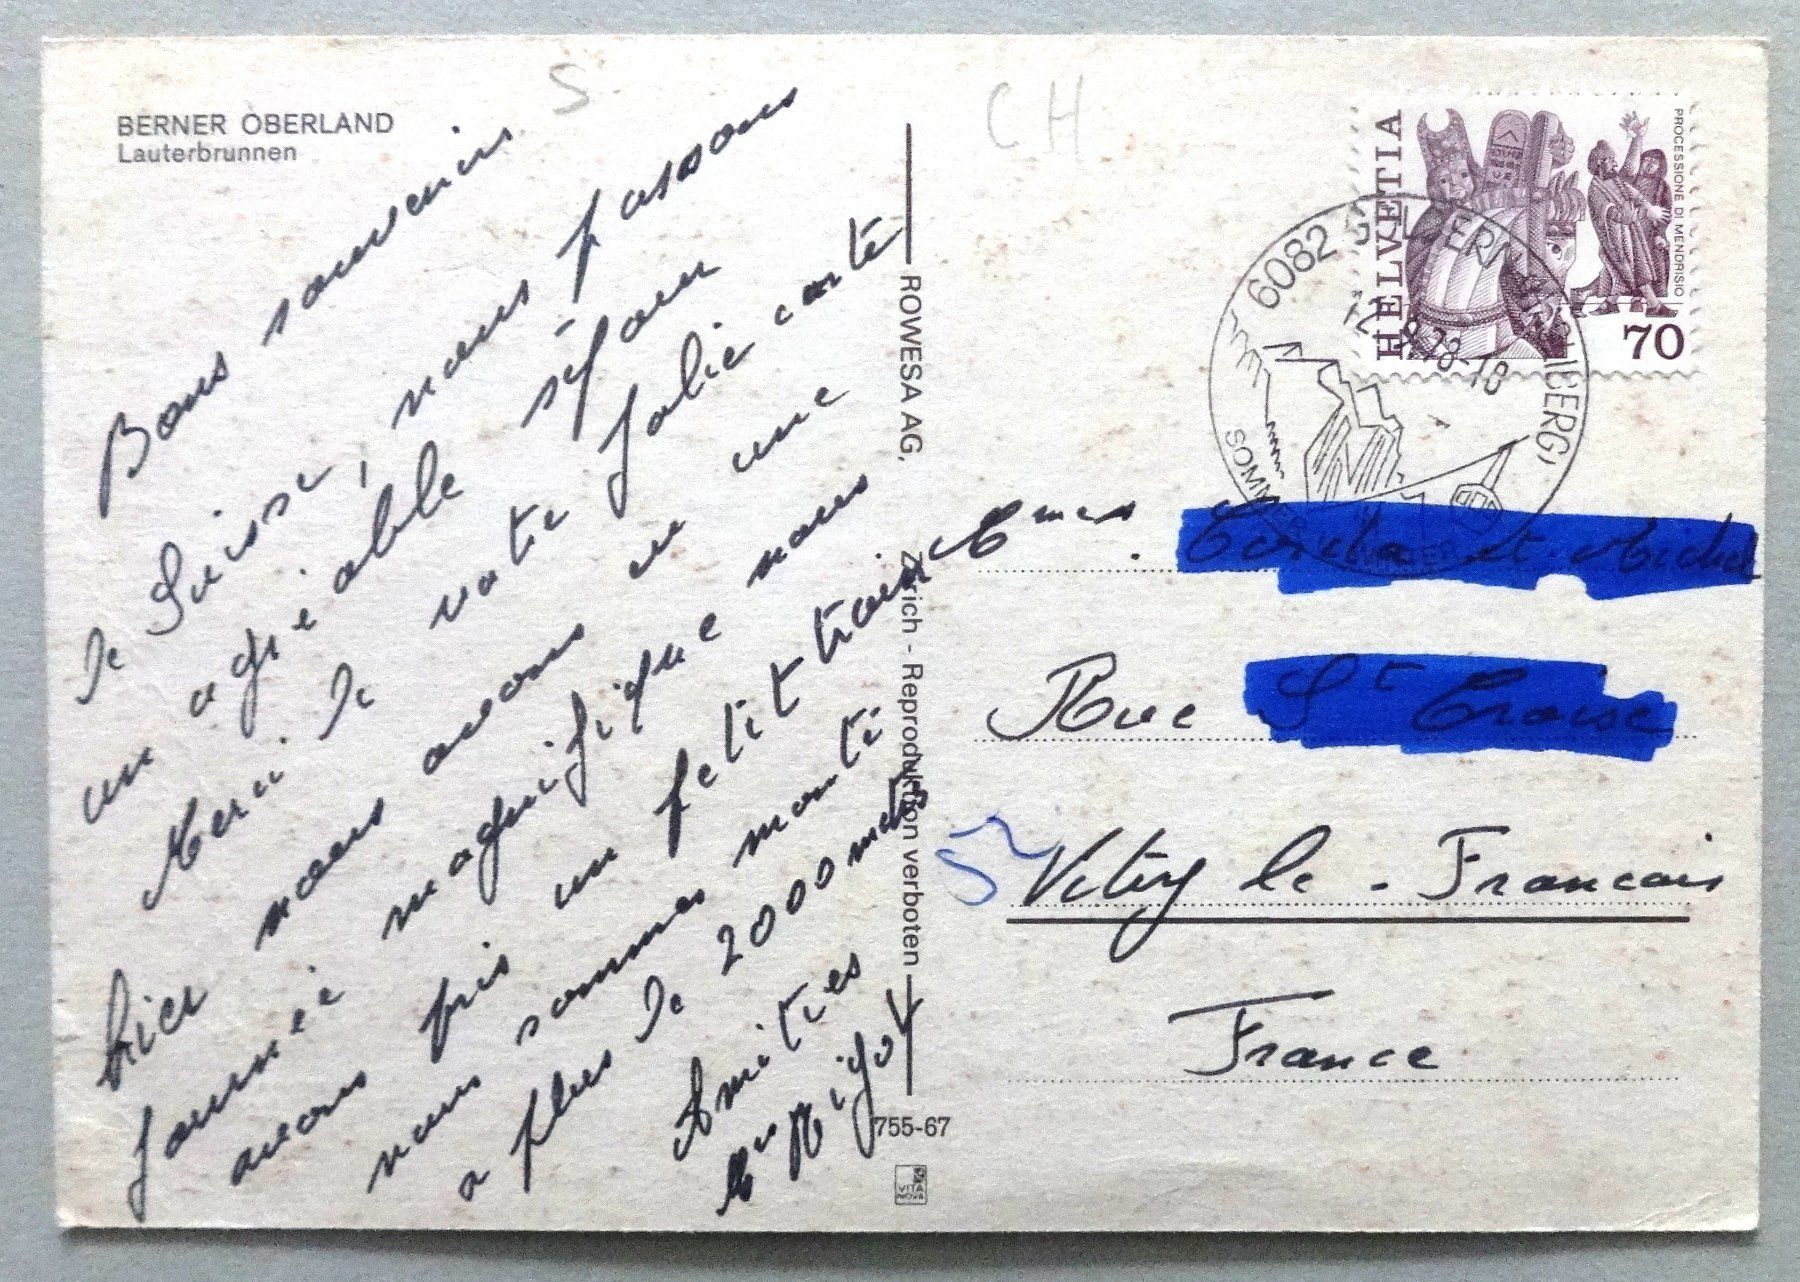 BERNER OBERLAND
Lauterbrunnen
S
Bons souvenirs
de Suisse, nous passons
un agréable séjour
Merci de votre jolie carte
hier nous avons eu une
journée magnifique nous
avons pris un petit train
nous sommes monté
a plus de 2000 m
Amitiés
ROWESA AG, Zürich - Reproduktion verboten
755-67
VITA
NOVA
CH
HELVETIA
PROCESSIONE DI MENDRISIO
70
6082
78-18
SOMMER
Rue
51
Vitry le - Francais
France